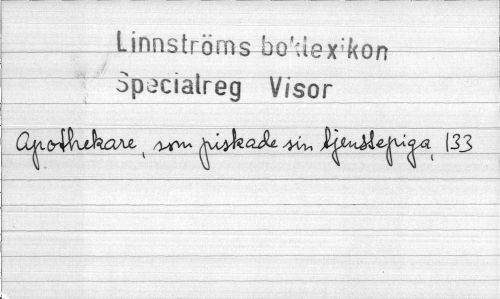 Linnströms boklexikon
Specialreg Visor
Apothekare, som piskade sin tjenstepiga, 133